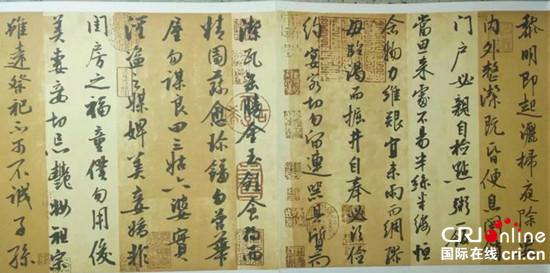 黎明即起灑掃庭除
内外整潔既昏便息
门户必親自檢點一粥一
當思来處不易半絲半缕恒
念物力維艱宜未雨而綢繆
毋臨渴而掘井自奉必須儉
约宴客切勿留連器具質而
潔瓦缶勝金玉飲食约而
精園蔬愈珍饈勿营華
屋勿谋良田三姑六婆實
淫盗之媒婢美妾嬌非
闺房之福童僕勿用俊
美妻妾切忌艷妝祖宗
雖遠祭祀不可不诚子孫
CRI Online
国际在线 cri.cn